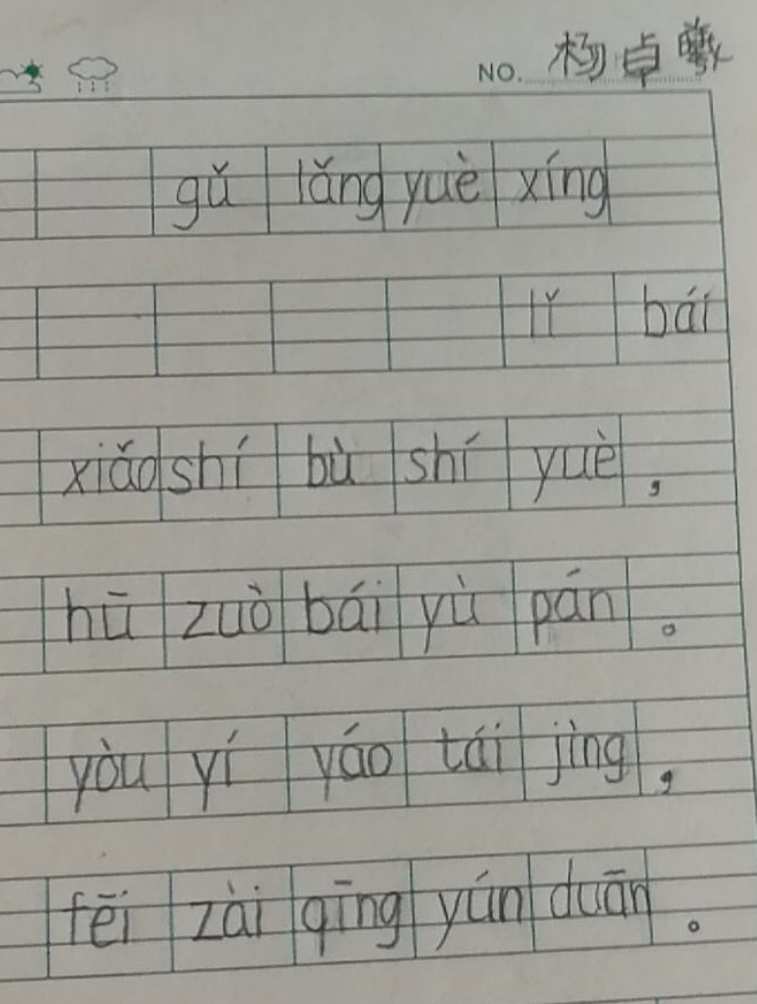 NO. 杨卓曦
gǔ lǎng yuè xíng
lǐ bái
xiǎo shí bù shí yuè ,
hū zuò bái yù pán 。
yòu yí yáo tái jìng ,
fēi zài qīng yún duān 。